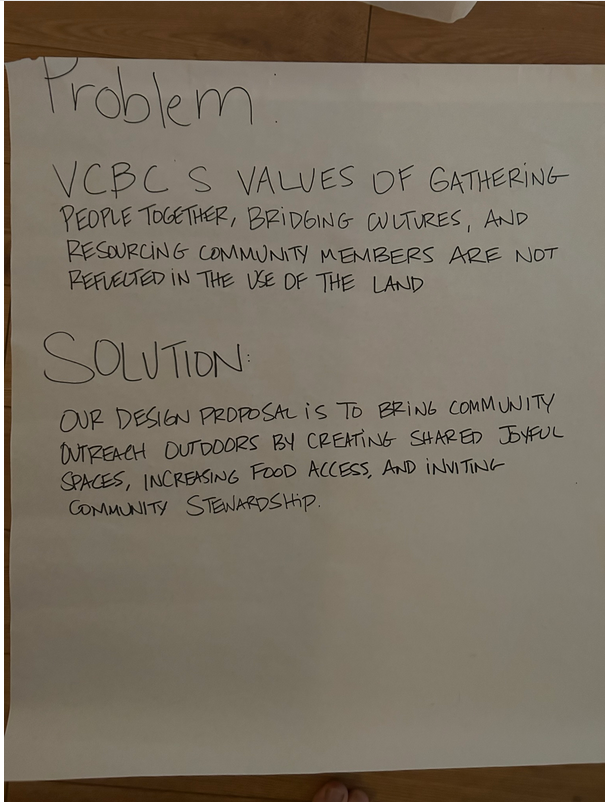 Problem.
VCBC'S VALUES OF GATHERING
PEOPLE TOGETHER, BRIDGING CULTURES, AND
RESOURCING COMMUNITY MEMBERS ARE NOT
REFLECTED IN THE USE OF THE LAND
SOLUTION:
OUR DESIGN PROPOSAL IS TO BRING COMMUNITY
OUTREACH OUTDOORS BY CREATING SHARED JOYFUL
SPACES, INCREASING FOOD ACCESS, AND INVITING
COMMUNITY STEWARDSHIP.